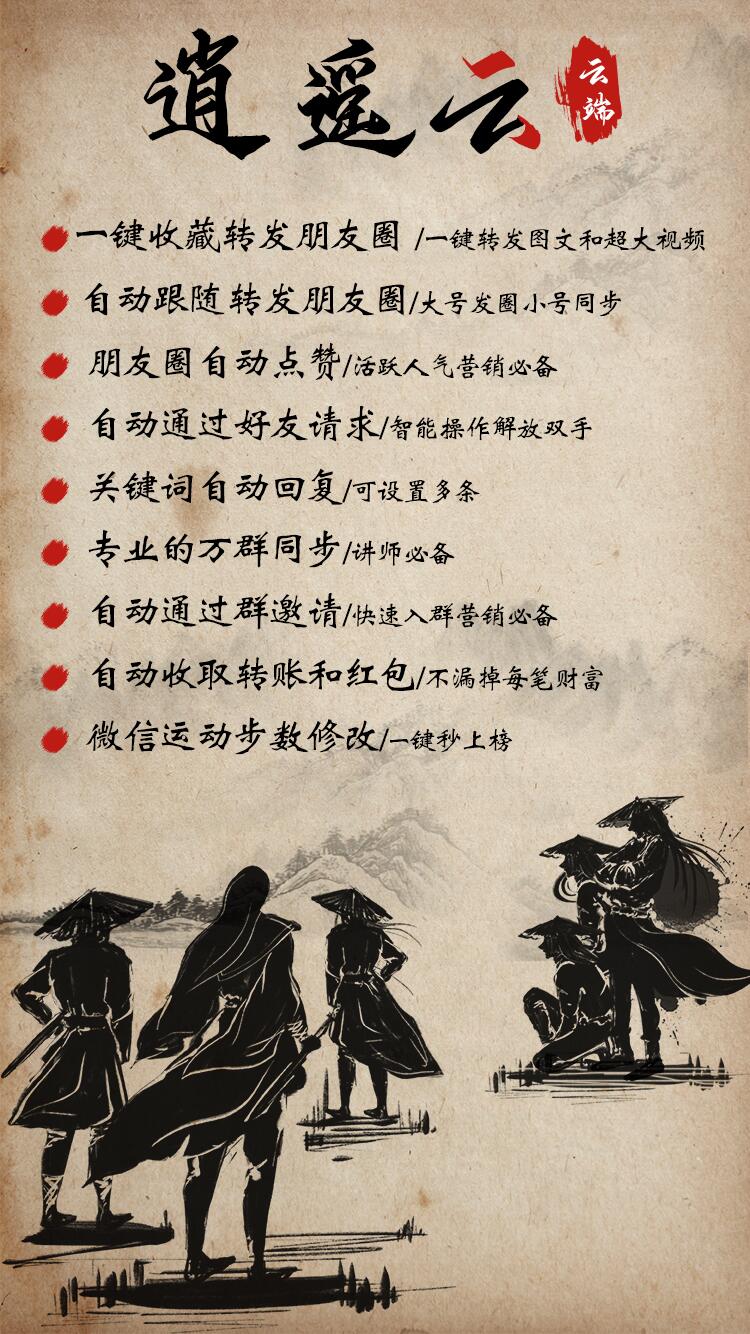 逍遥云
云端
一键收藏转发朋友圈 /一键转发图文和超大视频
自动跟随转发朋友圈/大号发圈小号同步
朋友圈自动点赞/活跃人气营销必备
自动通过好友请求/智能操作解放双手
关键词自动回复/可设置多条
专业的万群同步/讲师必备
自动通过群邀请/快速入群营销必备
自动收取转账和红包/不漏掉每笔财富
微信运动步数修改/一键秒上榜